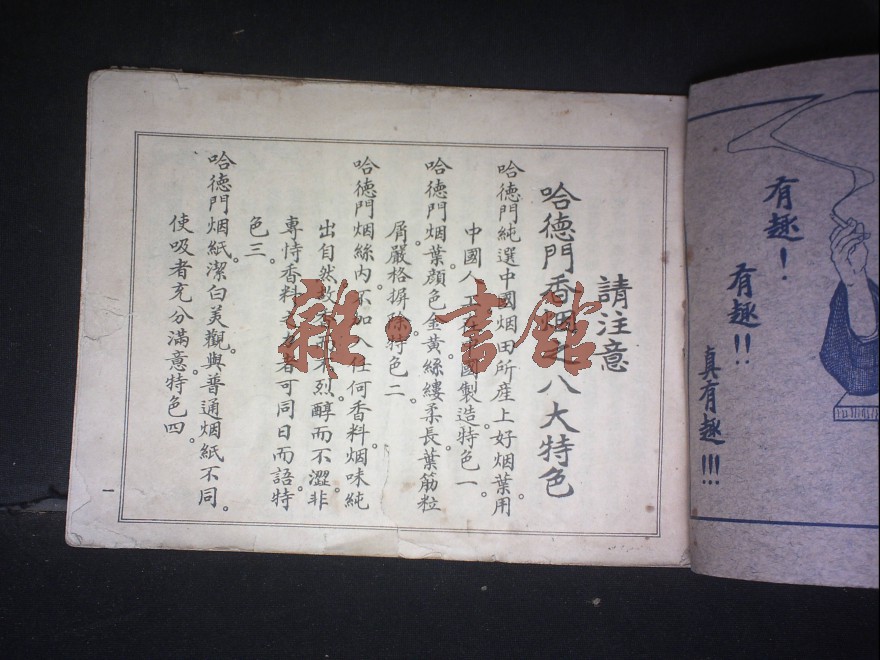 有趣！
有趣!!
真有趣!!!
請注意
哈德門香烟之八大特色
哈德門純選中國烟田所産上好烟葉用
中國人工在中國製造。特色一。
哈德門烟葉顔色金黃絲縷柔長葉筋粒
屑嚴格摒除。特色二。
哈德門烟絲内不加入任何香料烟味純
出自然故 而不烈。醇而不澀。非
專恃香料 者可同日而語特
色三。
哈德門烟紙。潔白美觀。與普通烟紙不同。
使吸者充分滿意。特色四。
一
雜·書館